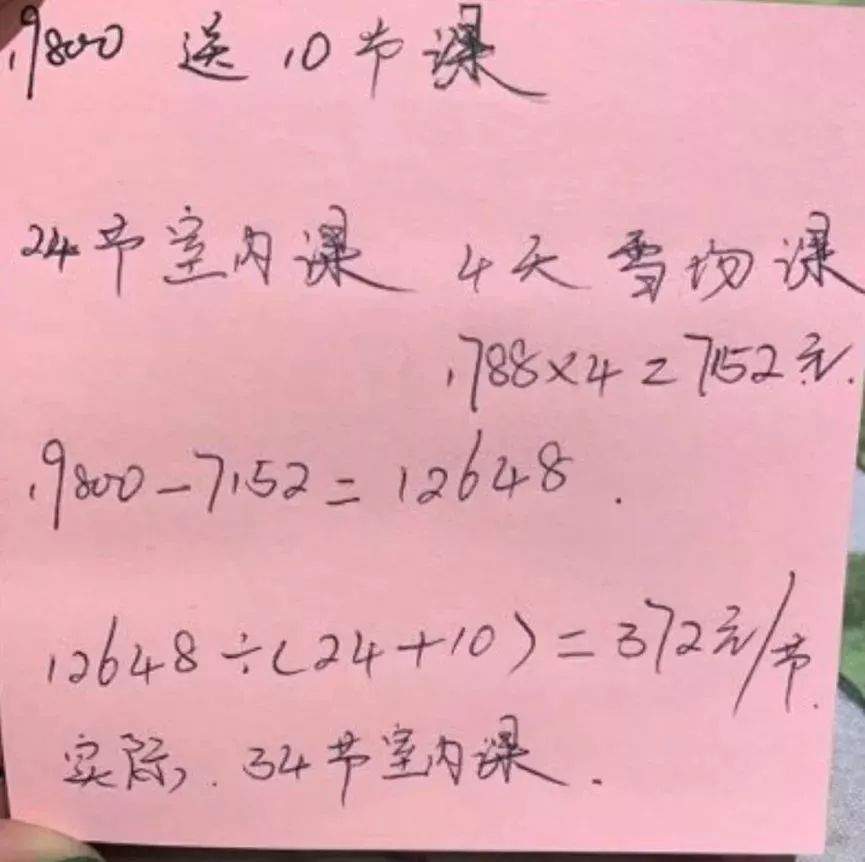 19800 送 10节课
24节室内课 4天雪场课
1788×4=7152元.
19800-7152=12648.
12648÷(24+10)=372元/节.
实际,.34节室内课.